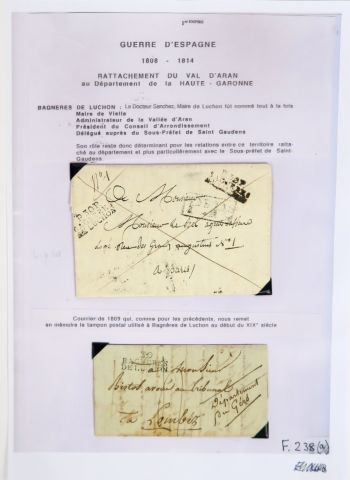 1er EMPIRE
GUERRE D'ESPAGNE
1808 - 1814
RATTACHEMENT DU VAL D'ARAN
au Département de la HAUTE - GARONNE
BAGNERES DE LUCHON : Le Docteur Sanchez, Maire de Luchon fût nommé tout à la fois
Maire de Viella
Administrateur de la Vallée d'Aran
Président du Conseil d'Arrondissement
Délégué auprès du Sous-Préfet de Saint Gaudens
Son rôle reste donc déterminant pour les relations entre ce territoire ratta-
ché au département et plus particulièrement avec le Sous-préfet de Saint-
Gaudens
De Monsieur
Monsieur
N° 1
a Paris
Courrier de 1809 qui, comme pour les précédents, nous remet
en mémoire le tampon postal utilisé à Bagnères de Luchon au début du XIX° siècle
30
BAGNERES
DE LUCHON
a Monsieur
avoué au tribunal
Département
du Gers
Lombez
F. 238 (9)